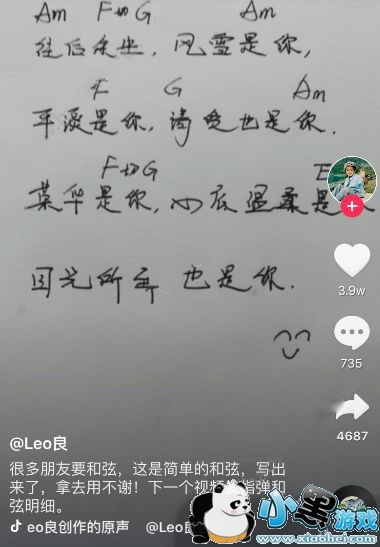 Am F切G Am
往后余生，风雪是你，
F G Am
平淡是你，清贫也是你．
F切G E
荣华是你，心底温柔是
目光所至 也是你．
3.9w
735
4687
@Leo良
很多朋友要和弦，这是简单的和弦，写出
来了，拿去用不谢！下一个视频 指弹和
弦明细。
eo良创作的原声 @Leo良
小黑游戏
www.xiaohei.com